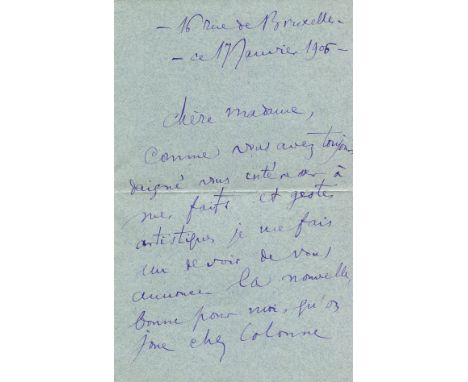 - 16 rue de Bruxelles -
- ce 17 Janvier 1906 -
chère Madame,
comme vous avez toujours
daigné vous intéresser à
mes faits et gestes
artistiques je me fais
un devoir de vous
annoncer la nouvelle,
bonne pour moi, qu'on
joue chez Colonne